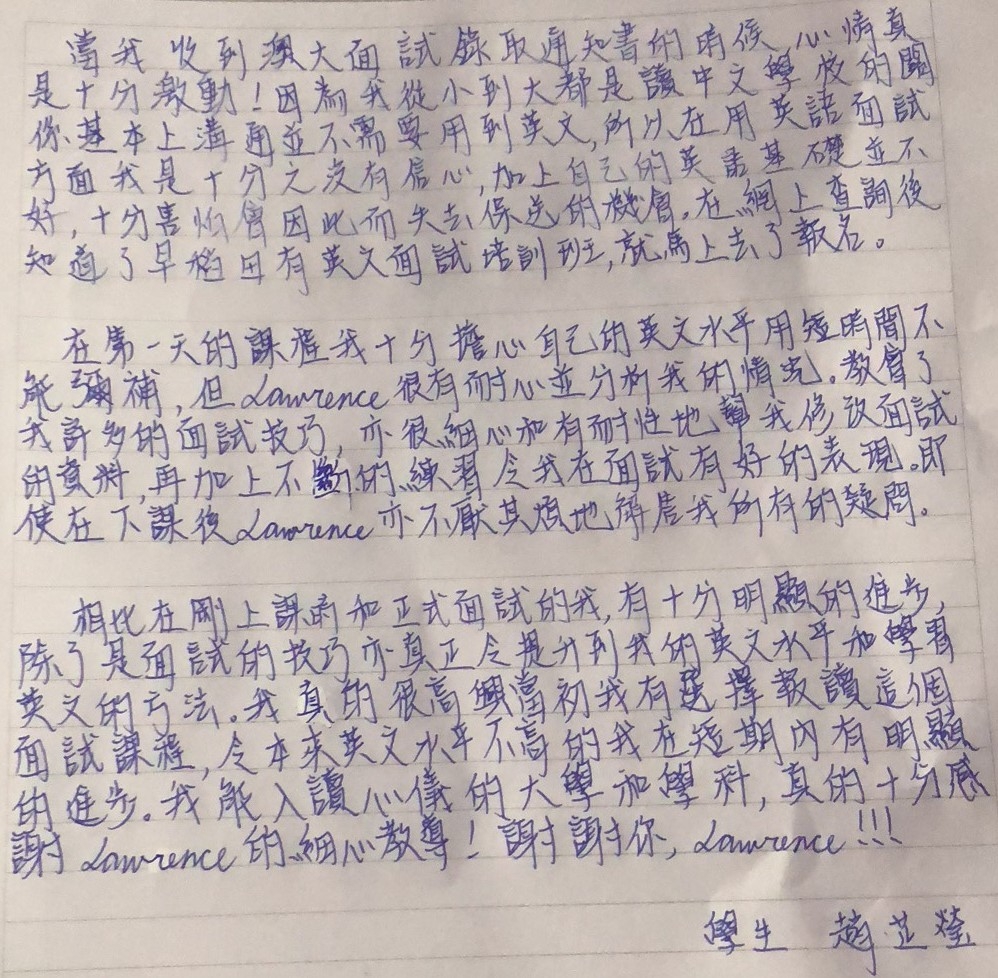 當我收到澳大面試錄取通知書的時候，心情真
是十分激動！因為我從小到大都是讀中文學校的關
係，基本上溝通並不需要用到英文，所以在用英語面試
方面我是十分之沒有信心，加上自己的英語基礎並不
好，十分害怕會因此而失去保送的機會。在網上查詢後
知道了早稻田有英文面試培訓班，就馬上去了報名。
在第一天的課程我十分擔心自己的英文水平用短時間不
能彌補，但Lawrence很有耐心並分析我的情況。教會了
我許多的面試技巧，亦很細心和有耐性地幫我修改面試
的資料，再加上不斷的練習令我在面試有好的表現。即
使在下課後Lawrence亦不厭其煩地解答我所有的疑問。
相比在剛上課前和正式面試的我，有十分明顯的進步，
除了是面試的技巧亦真正令提升到我的英文水平和學習
英文的方法。我真的很高興當初我有選擇報讀這個
面試課程，令本來英文水平不高的我在短期內有明顯
的進步。我能入讀心儀的大學和學科，真的十分感
謝Lawrence的細心教導！謝謝你，Lawrence!!!
學生 趙芷瑩